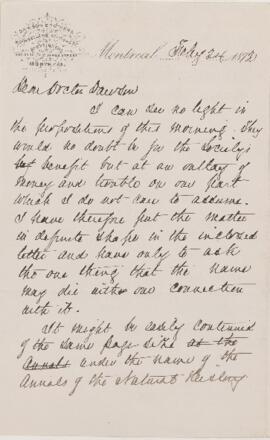 MONTREAL
Montreal, Feby 24 1872
Dear Doctor Dawson
I can see no light in
the propositions of this morning. They
would no doubt be for the Society's
benefit but at an outlay of
money and trouble on our part
which I do not care to assume.
I have therefore put the matter
in definite shape in the inclosed
letter and have only to ask
the one thing that the name
may die with our connection
with it.
It might be easily continued
of the same page size as the
Annals under the name of the
Annals of the Natural History